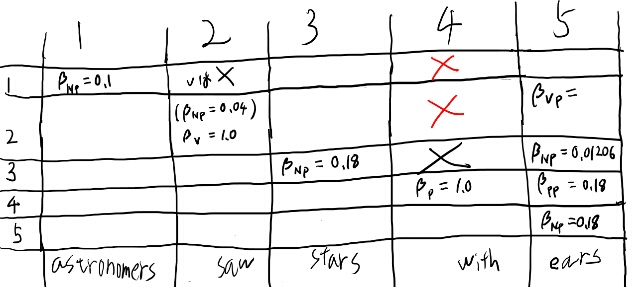 1 2 3 4 5
1 β_NP = 0.1 X X
2 (β_NP = 0.04) X β_VP =
β_V = 1.0
3 β_NP = 0.18 X β_NP = 0.01206
4 β_P = 1.0 β_PP = 0.18
5 β_NP = 0.18
astronomers saw stars with ears